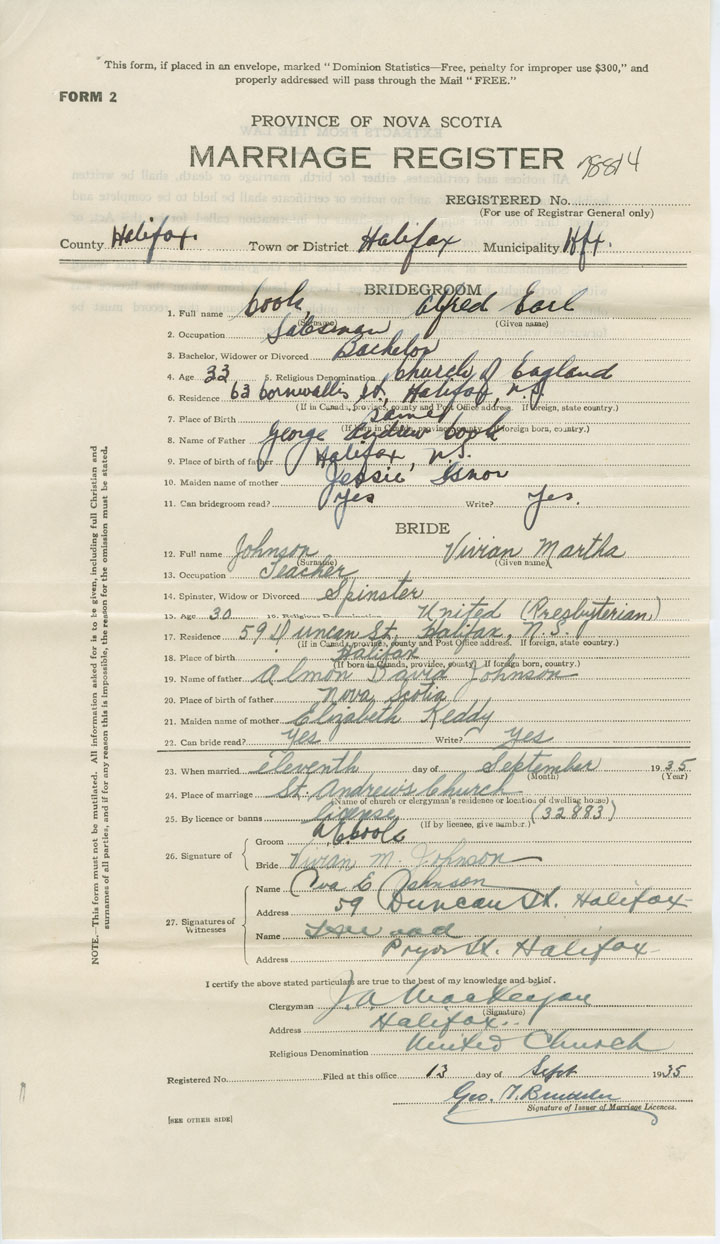 This form, if placed in an envelope, marked "Dominion Statistics—Free, penalty for improper use $300," and
properly addressed will pass through the Mail "FREE."
FORM 2
PROVINCE OF NOVA SCOTIA
MARRIAGE REGISTER
REGISTERED No.
(For use of Registrar General only)
County Halifax. Town or District Halifax Municipality Hfx.
BRIDEGROOM
1. Full name Cook, Alfred Earl
(Surname) (Given name)
2. Occupation Salesman
3. Bachelor, Widower or Divorced Bachelor
4. Age 33 5. Religious Denomination Church of England
6. Residence 63 Cornwallis St, Halifax, N.S.
(If in Canada, province, county and Post Office address. If foreign, state country.)
7. Place of Birth Same
(If born in Canada, province, county. If foreign born, country.)
8. Name of Father George Andrew Cook
9. Place of birth of father Halifax, N.S.
10. Maiden name of mother Jessie Isnor
11. Can bridegroom read? Yes Write? Yes.
BRIDE
12. Full name Johnson Vivian Martha
(Surname) (Given name)
13. Occupation Teacher
14. Spinster, Widow or Divorced Spinster
15. Age 30 16. Religious Denomination United (Presbyterian)
17. Residence 59 Duncan St, Halifax, N.S.
(If in Canada, province, county and Post Office address. If foreign, state country.)
18. Place of birth Halifax
(If born in Canada, province, county. If foreign born, country.)
19. Name of father Almon David Johnson
20. Place of birth of father Nova Scotia
21. Maiden name of mother Elizabeth Keddy
22. Can bride read? Yes Write? Yes
23. When married eleventh day of September 1935
(Month) (Year)
24. Place of marriage St. Andrew's Church
(Name of church or clergyman's residence or location of dwelling house)
25. By licence or banns license (32883)
(If by licence, give number.)
26. Signature of
Groom A E Cook
Bride Vivian M. Johnson
27. Signatures of Witnesses
Name Eva E Johnson
Address 59 Duncan St. Halifax
Name
Address Pryor St. Halifax
I certify the above stated particulars are true to the best of my knowledge and belief.
Clergyman J. A. MacKeigan
(Signature)
Address Halifax
Religious Denomination United Church
Registered No. Filed at this office 13 day of Sept 1935
Geo. T.
Signature of Issuer of Marriage Licences.
[SEE OTHER SIDE]
NOTE.—This form must not be mutilated. All information asked for is to be given, including full Christian and
surnames of all parties, and if for any reason this is impossible, the reason for the omission must be stated.